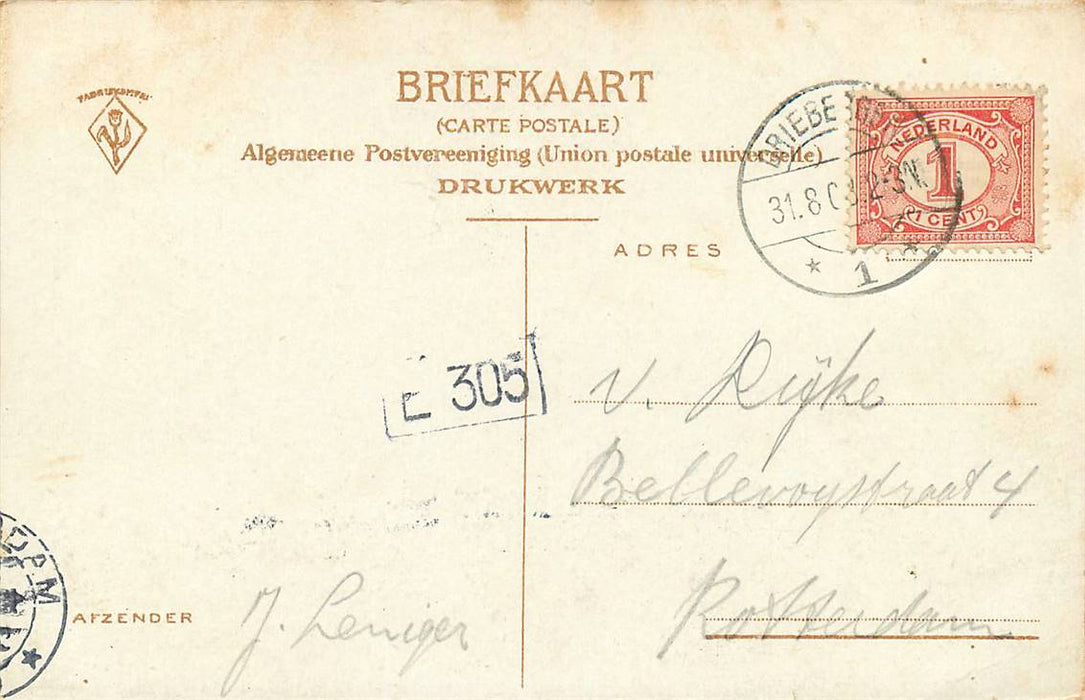 FABRIEKSMERK
BRIEFKAART
(CARTE POSTALE)
Algemeene Postvereeniging (Union postale universelle)
DRUKWERK
ADRES
31.8 2-3N.
* 1 *
NEDERLAND
1
1 CENT
E 305
v. Rijke
Bellevoystraat 4
Rotterdam
AFZENDER
J. Leniger